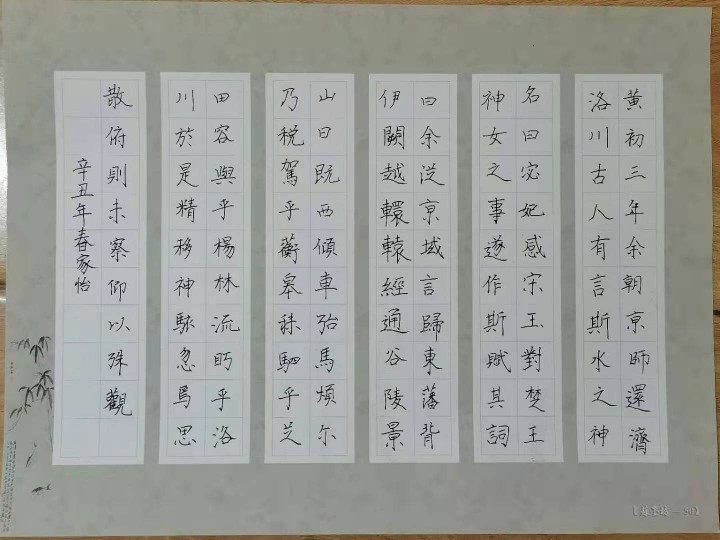 黄初三年余朝京師還濟
洛川古人有言斯水之神
名曰宓妃感宋玉對楚王
神女之事遂作斯賦其詞
曰余従京域言歸東藩背
伊闕越轘轅經通谷陵景
山日既西傾車殆馬煩尓
乃税駕乎蘅皋秣駟乎芝
田容與乎楊林流眄乎洛
川於是精移神駭忽焉思
散俯則未察仰以殊觀
辛丑年春家怡